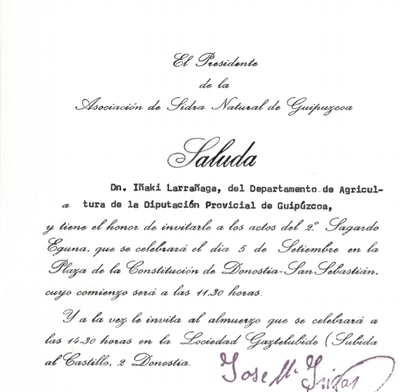 El Presidente
de la
Asociación de Sidra Natural de Guipuzcoa
Saluda
Dn. Iñaki Larrañaga, del Departamento de Agricul-
a tura de la Diputación Provicial de Guipúzcoa,
y tiene el honor de invitarle a los actos del 2.º Sagardo
Eguna, que se celebrará el día 5 de Setiembre en la
Plaza de la Constitución de Donostia-San Sebastián,
cuyo comienzo será a las 11.30 horas.
Y a la vez le invita al almuerzo que se celebrará a
las 14-30 horas en la Sociedad Gaztelubide (Subida
al Castillo, 2 Donostia.
Jose Mª